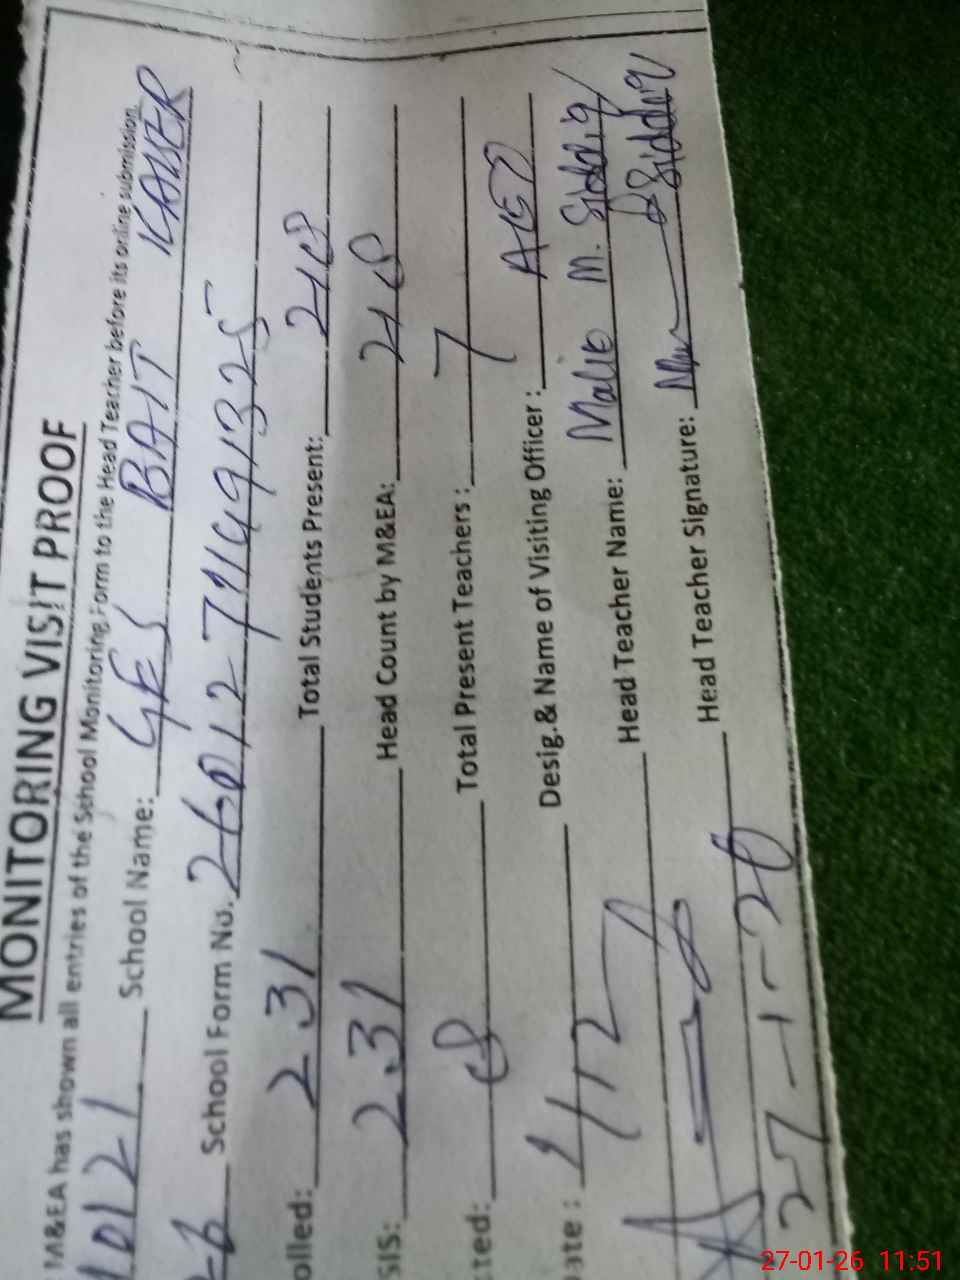 MONITORING VISIT PROOF
M&EA has shown all entries of the School Monitoring Form to the Head Teacher before its online submission.
10121 School Name: GES BAIT KAUSER
School Form No. 26012 77149 1325
olled: 231 Total Students Present: 218
SIS: 231 Head Count by M&EA: 218
ted: 8 Total Present Teachers : 7
ate : Desig.& Name of Visiting Officer : AEO
Head Teacher Name: M. Siddiq
Head Teacher Signature: Siddiq
27-1-26
27-01-26 11:51